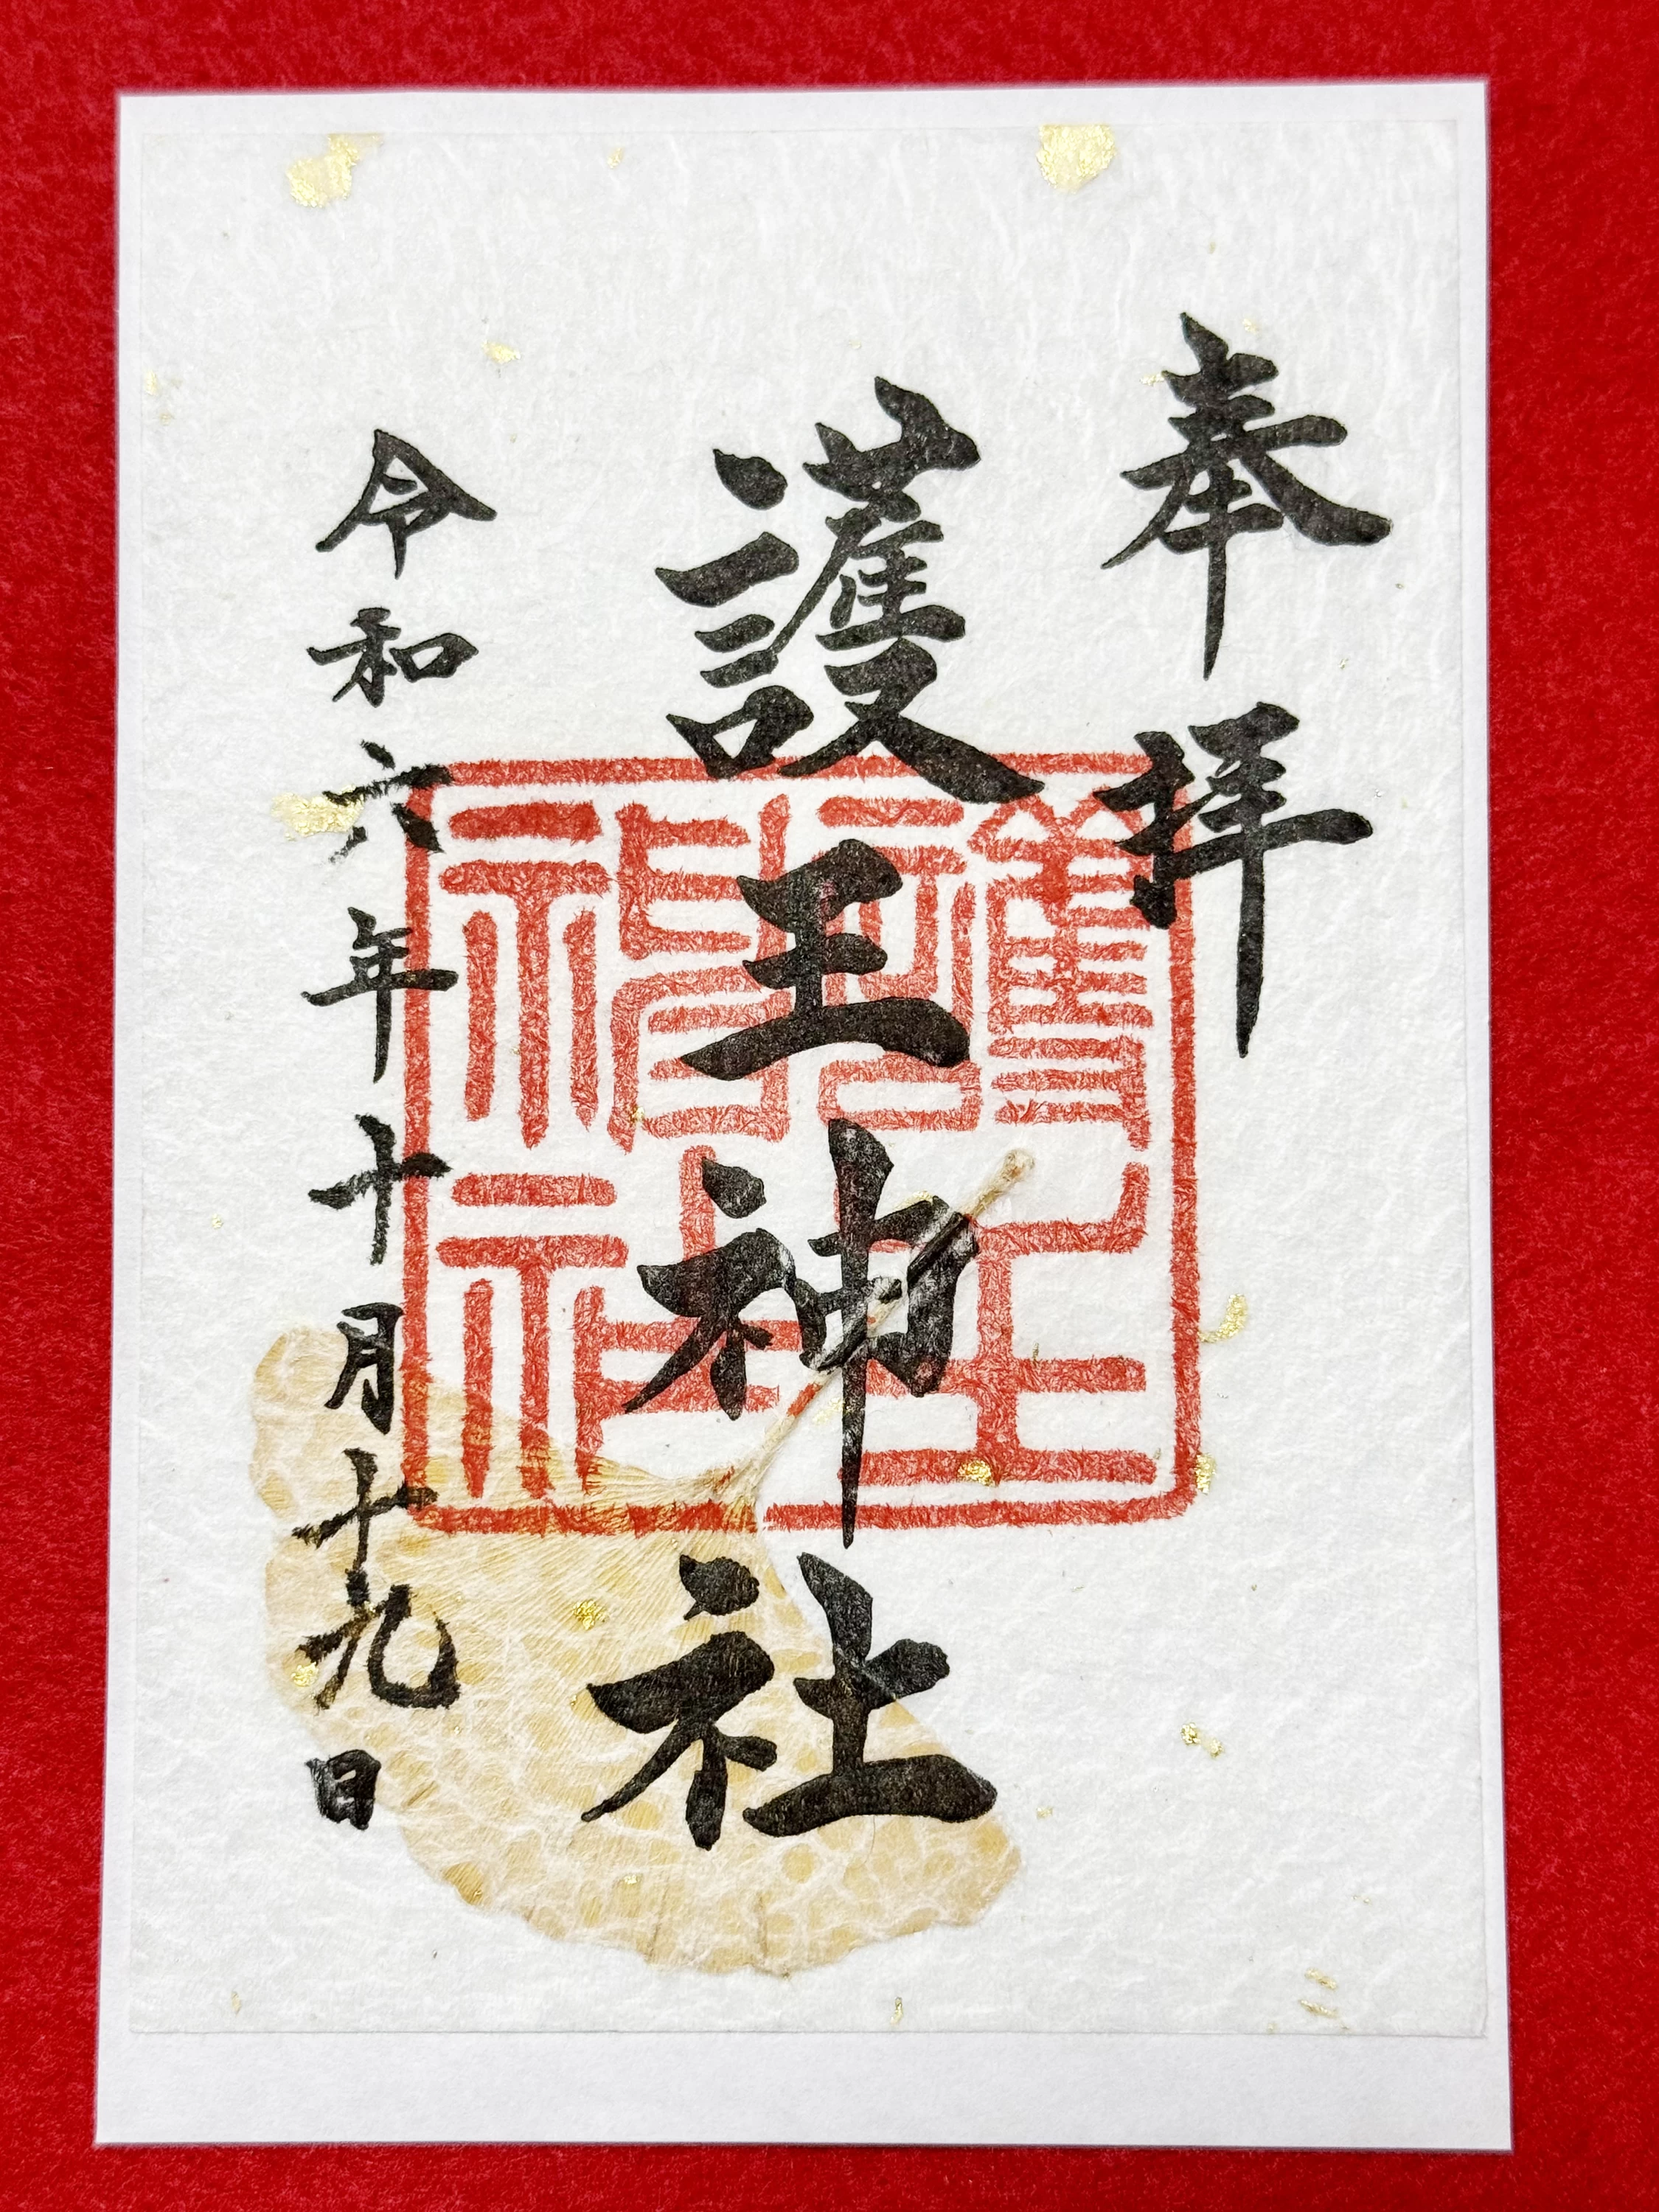 奉拝
護王神社
護王神社
令和六年十月十九日